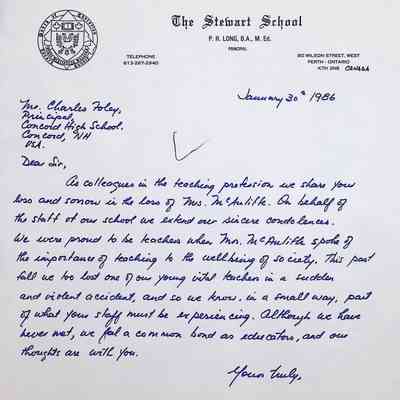 The Stewart School
P. R. LONG, B.A., M. Ed.
PRINCIPAL
TELEPHONE
613-267-2940
80 WILSON STREET, WEST
PERTH - ONTARIO
K7H 2N6 CANADA
January 30th 1986
Mr. Charles Foley,
Principal,
Concord High School.
Concord, NH
USA.
Dear Sir,
As colleagues in the teaching profession we share your
loss and sorrow in the loss of Mrs. McAuliffe. On behalf of
the staff at our school we extend our sincere condolences.
We were proud to be teachers when Mrs. McAuliffe spoke of
the importance of teaching to the wellbeing of society. This past
fall we too lost one of our young vital teachers in a sudden
and violent accident, and so we know, in a small way, part
of what your staff must be experiencing. Although we have
never met, we feel a common bond as educators, and our
thoughts are with you.
Yours truly,